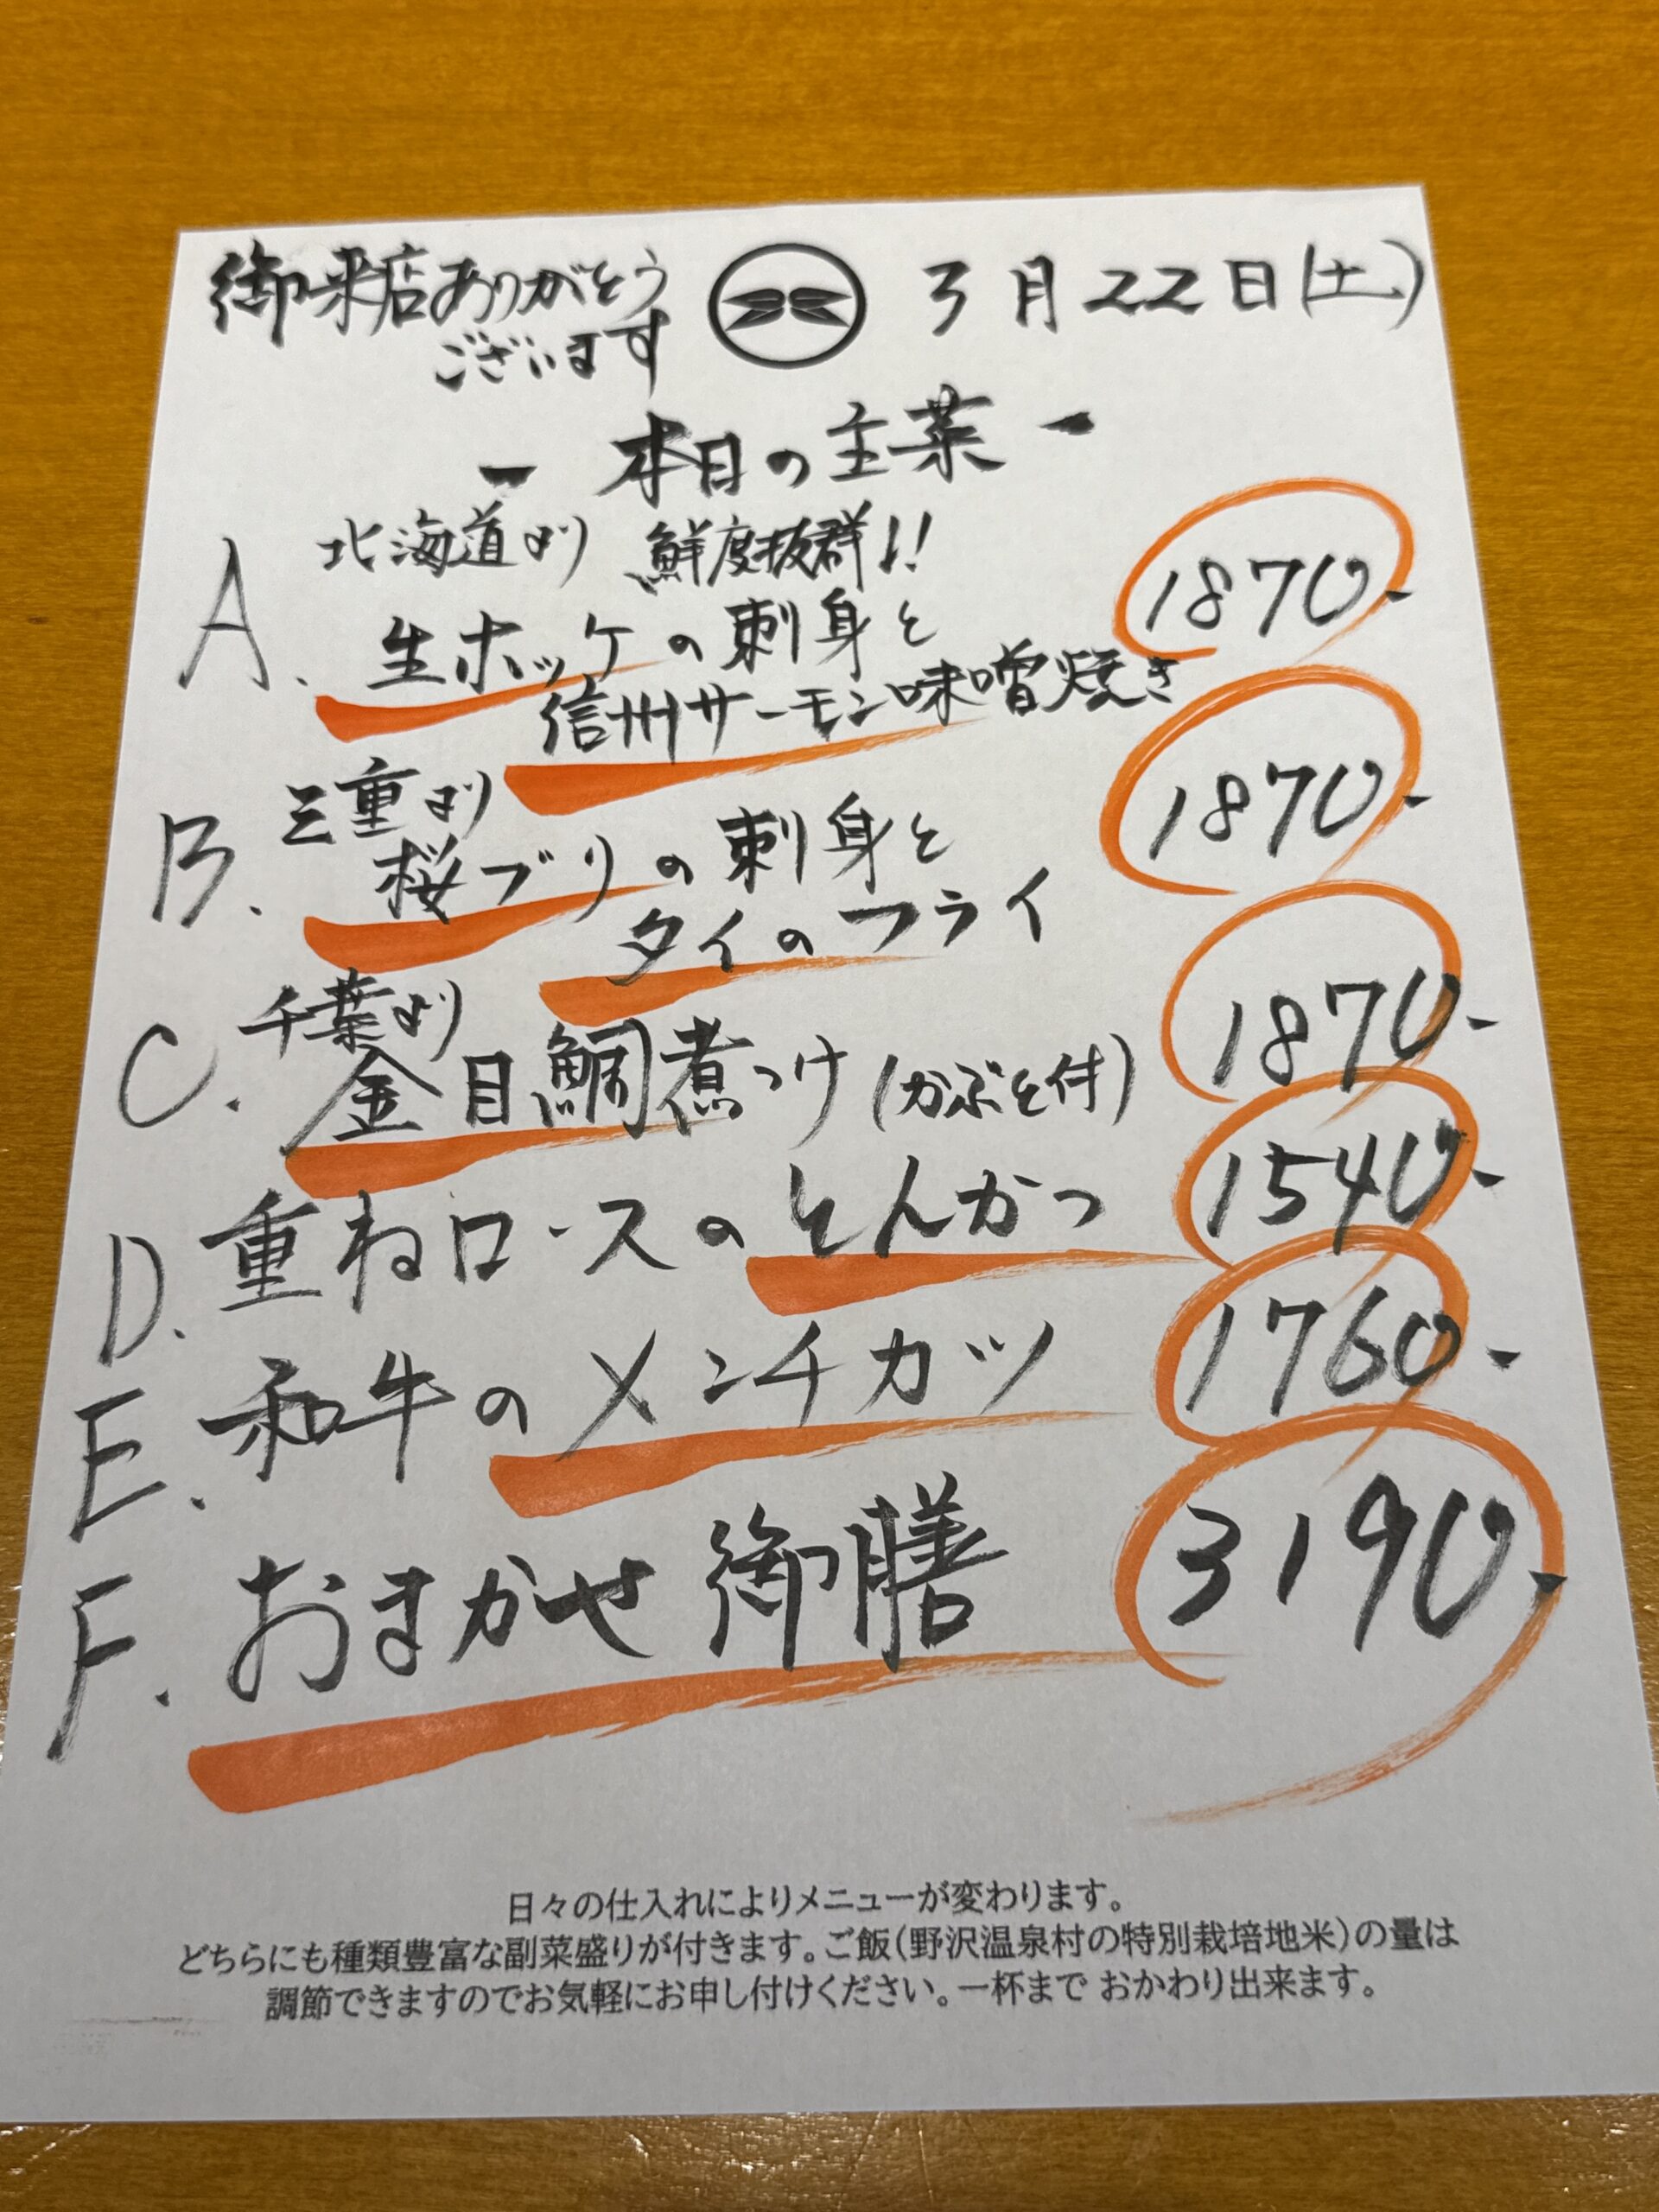 御来店ありがとう
ございます
3月22日(土)
- 本日の主菜 -
北海道より 鮮度抜群!!
A. 生ホッケの刺身と
信州サーモン味噌焼き
1870-
三重より
B. 桜ブリの刺身と
タイのフライ
1870-
千葉より
C. 金目鯛煮つけ(かぶと付)
1870-
D. 重ねロースのとんかつ
1540-
E. 和牛のメンチカツ
1760-
F. おまかせ御膳
3190-
日々の仕入れによりメニューが変わります。
どちらにも種類豊富な副菜盛りが付きます。ご飯(野沢温泉村の特別栽培地米)の量は
調節できますのでお気軽にお申し付けください。一杯まで おかわり出来ます。